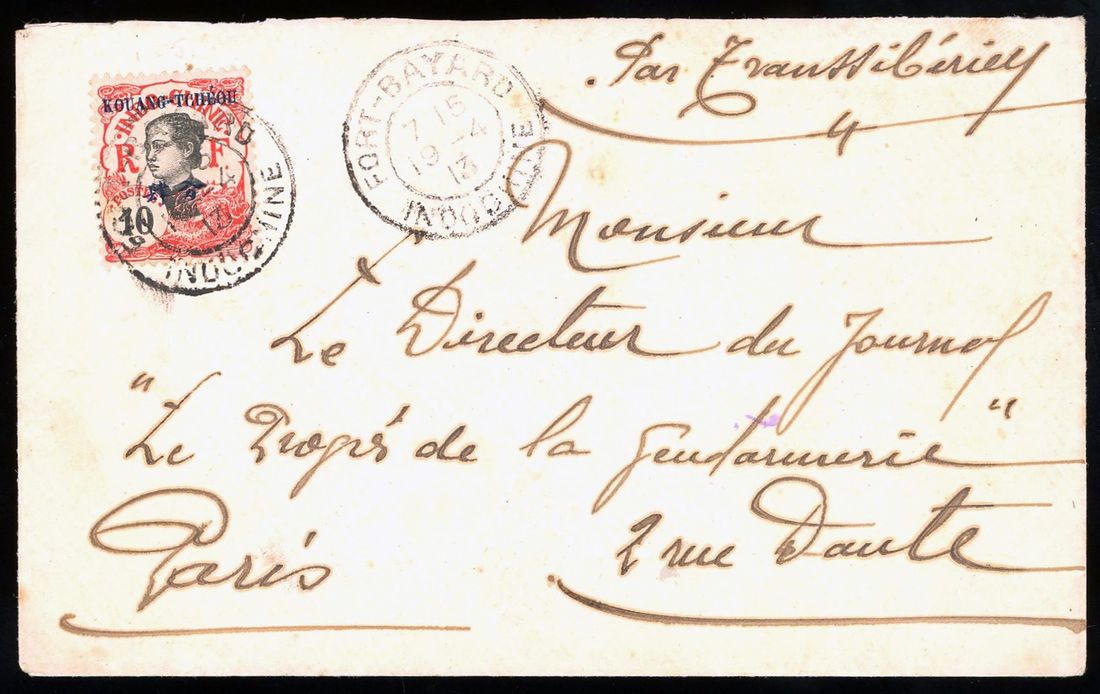 Par Transsibérien
KOUANG-TCHÉOU
INDO-CHINE
R F
POSTES
10
FORT-BAYARD
7 15
19 -4
13
INDOCHINE
INDOCHINE
Monsieur
Le Directeur du Journal
"Le Progrès de la Gendarmerie"
2 rue Dante
Paris